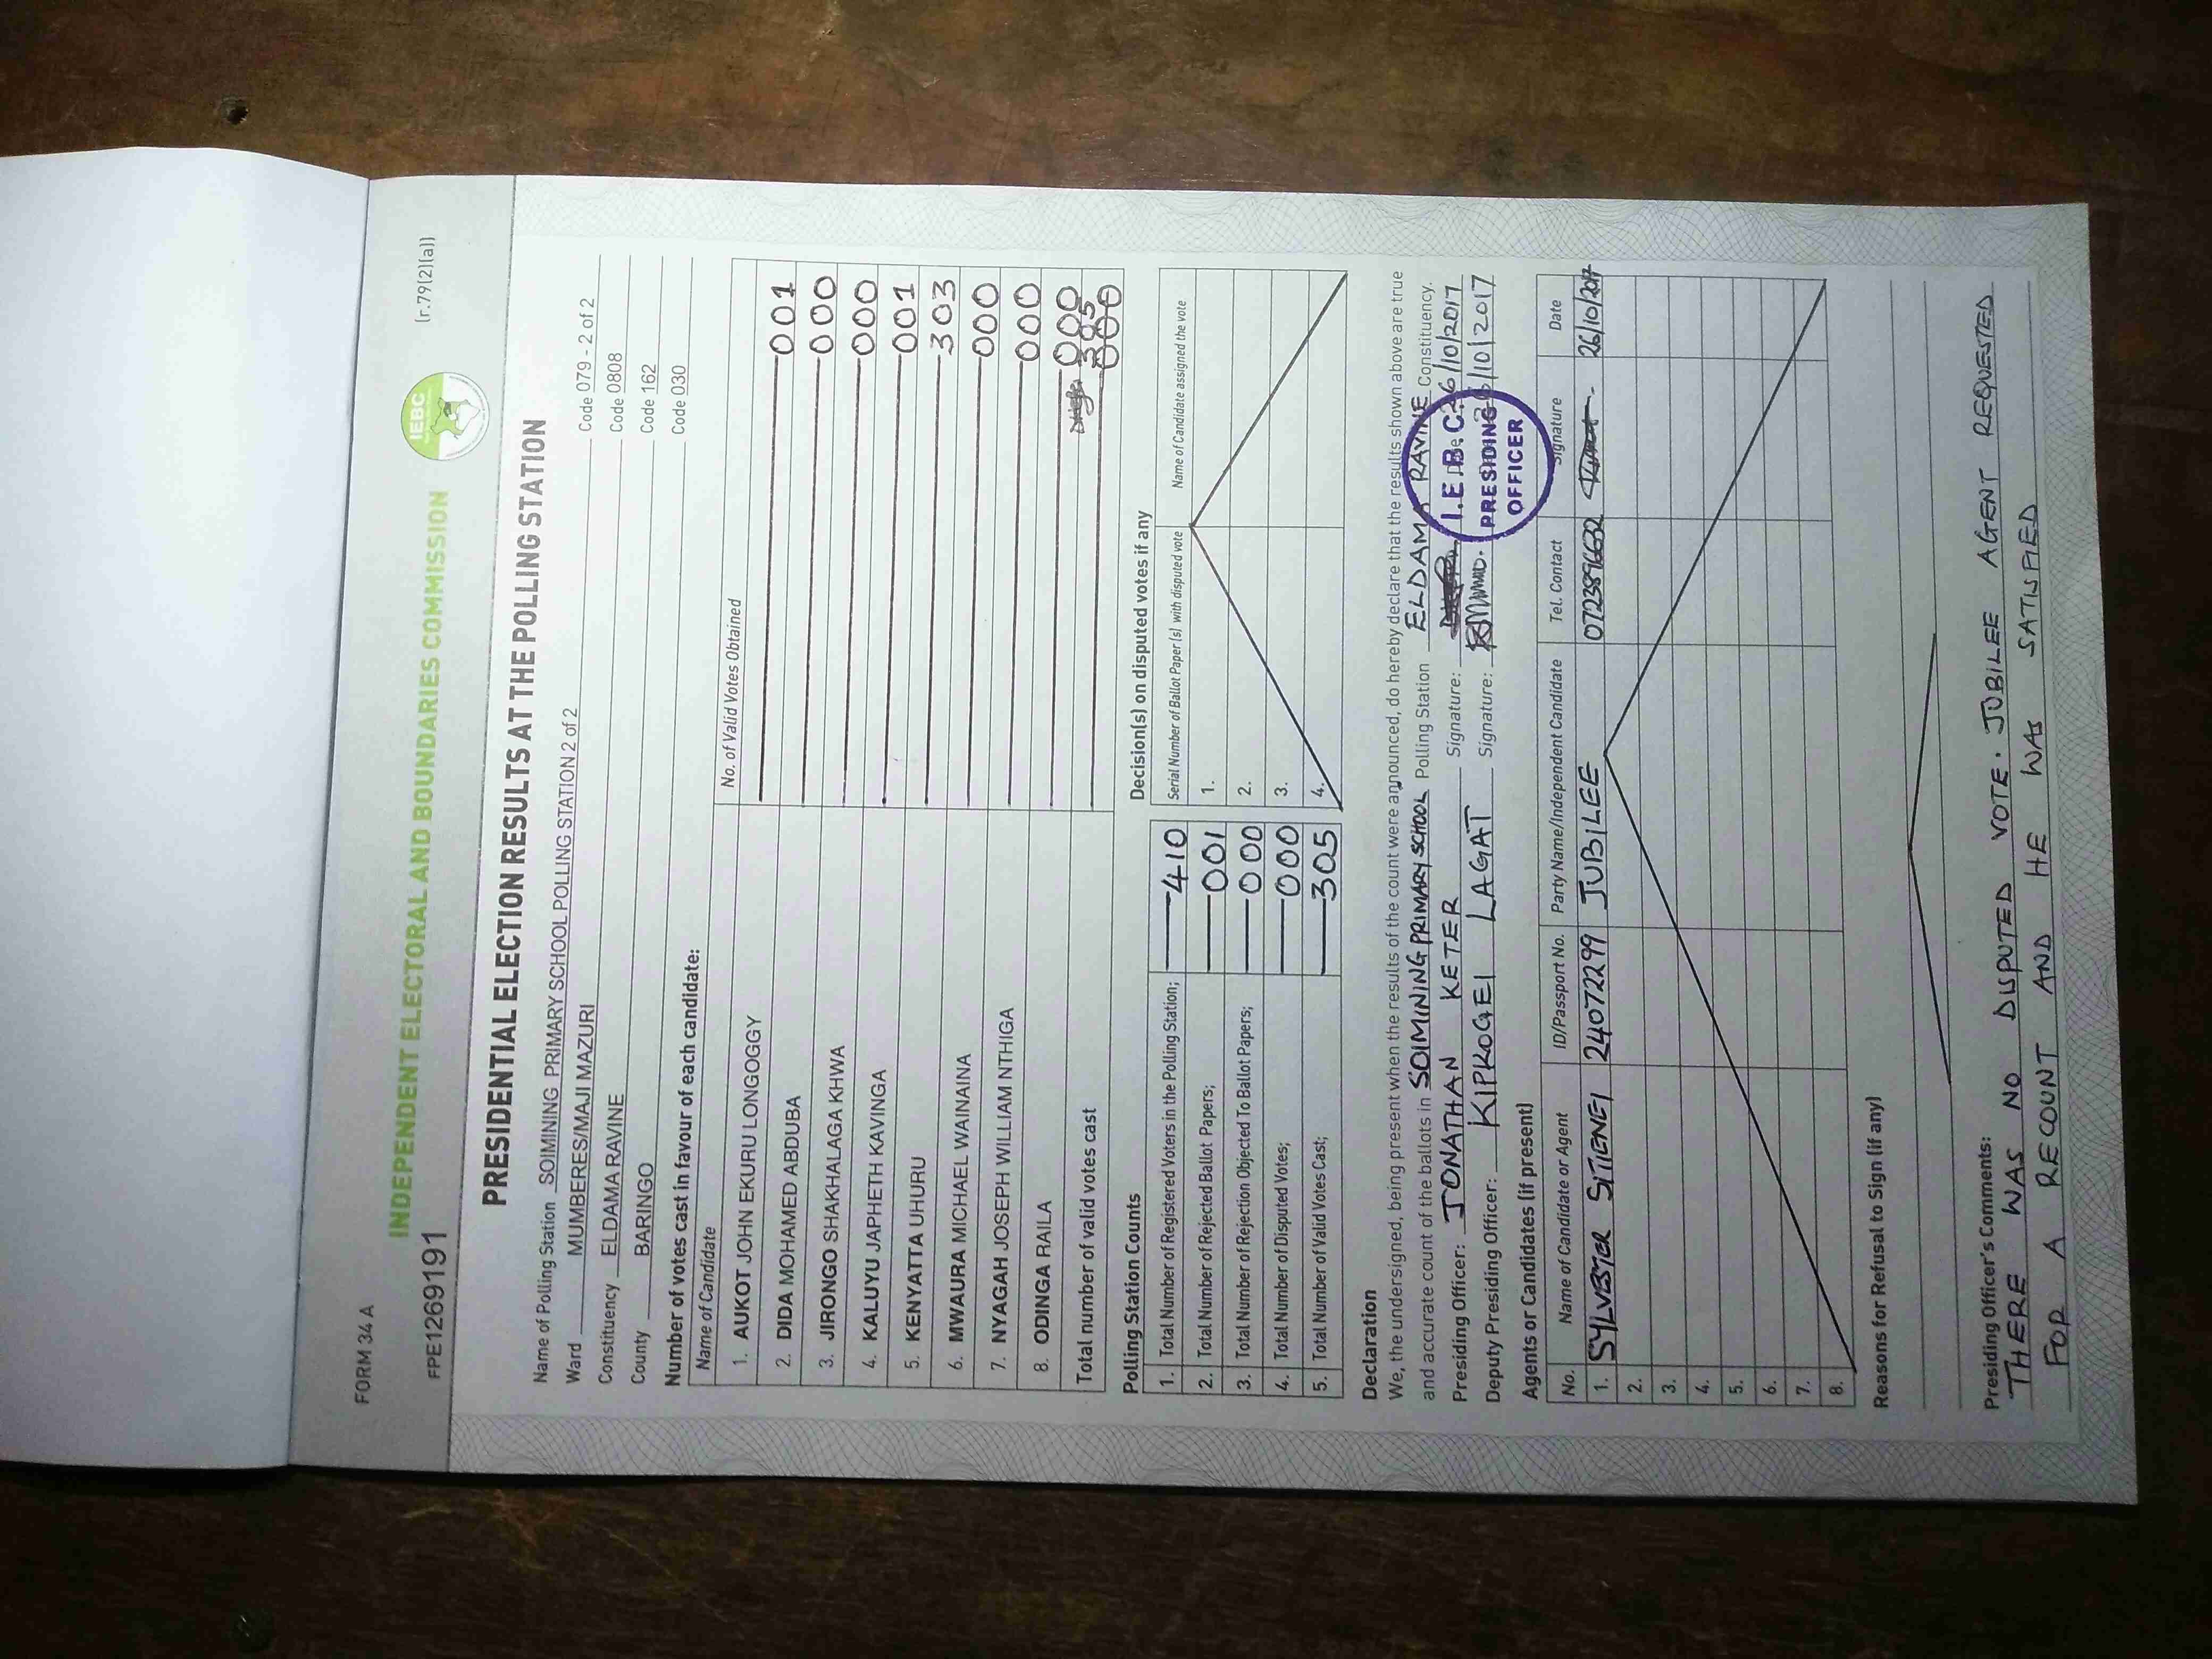 FORM 34 A
(r.79(2)(a))
FPE1269191
INDEPENDENT ELECTORAL AND BOUNDARIES COMMISSION
IEBC
PRESIDENTIAL ELECTION RESULTS AT THE POLLING STATION
Name of Polling Station SOIMINING PRIMARY SCHOOL POLLING STATION 2 of 2 Code 079 - 2 of 2
Ward MUMBERES/MAJI MAZURI Code 0808
Constituency ELDAMA RAVINE Code 162
County BARINGO Code 030
Number of votes cast in favour of each candidate:
Name of Candidate No. of Valid Votes Obtained
1. AUKOT JOHN EKURU LONGOGGY 001
2. DIDA MOHAMED ABDUBA 000
3. JIRONGO SHAKHALAGA KHWA 000
4. KALUYU JAPHETH KAVINGA 001
5. KENYATTA UHURU 303
6. MWAURA MICHAEL WAINAINA 000
7. NYAGAH JOSEPH WILLIAM NTHIGA 000
8. ODINGA RAILA 000
Total number of valid votes cast 305
Polling Station Counts
1. Total Number of Registered Voters in the Polling Station; 410
2. Total Number of Rejected Ballot Papers; 001
3. Total Number of Rejection Objected To Ballot Papers; 000
4. Total Number of Disputed Votes; 000
5. Total Number of Valid Votes Cast; 305
Decision(s) on disputed votes if any
Serial Number of Ballot Paper (s) with disputed vote Name of Candidate assigned the vote
1.
2.
3.
4.
Declaration
We, the undersigned, being present when the results of the count were announced, do hereby declare that the results shown above are true
and accurate count of the ballots in SOIMINING PRIMARY SCHOOL Polling Station ELDAMA RAVINE Constituency.
Presiding Officer: JONATHAN KETER Signature: Date: 26/10/2017
Deputy Presiding Officer: KIPKOGEI LAGAT Signature: 26/10/2017
I.E.B.C.
PRESIDING
OFFICER
Agents or Candidates (if present)
No. Name of Candidate or Agent ID/Passport No. Party Name/Independent Candidate Tel. Contact Signature Date
1. SYLVESTER SITIENEI 24072299 JUBILEE 26/10/2017
2.
3.
4.
5.
6.
7.
8.
Reasons for Refusal to Sign (if any)
Presiding Officer's Comments:
THERE WAS NO DISPUTED VOTE. JUBILEE AGENT REQUESTED
FOR A RECOUNT AND HE WAS SATISFIED